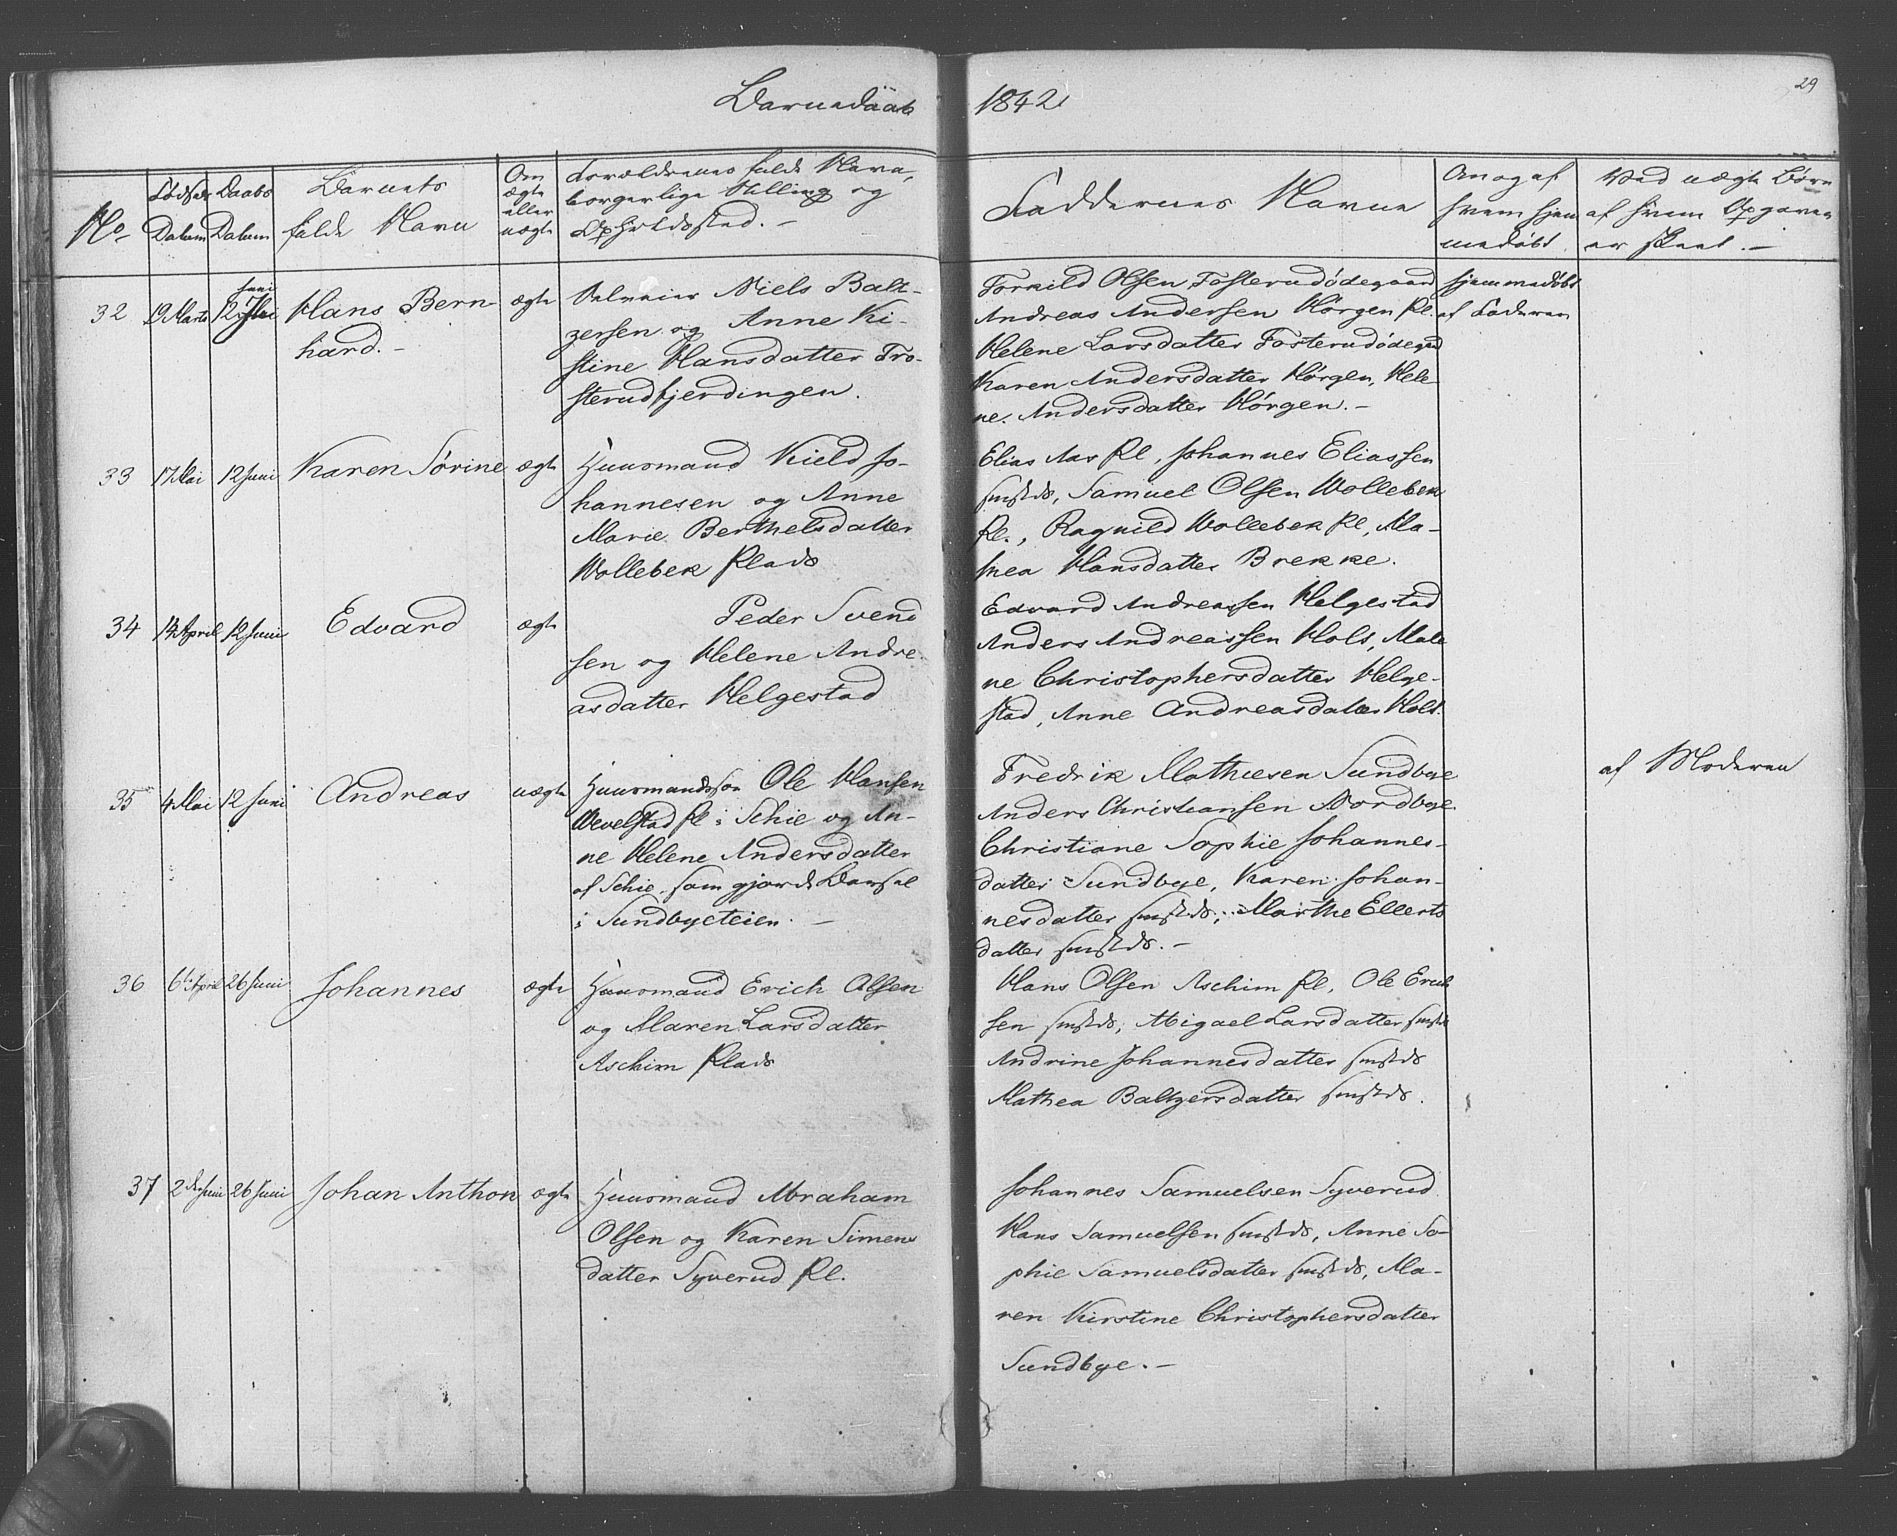 Barnedaab
1842
29
No
Fødsels Datum
Daabs Datum
Barnets fulde Navn
Om ægte eller uægte
Forældrenes fulde Navn, borgerlige Stilling og Opholdssted. -
Faddernes Navne
An og af hvem hjemmedøbt.
Ved uægte Børn af hvem Opgaven er skeet. -
32
19 Marts
12 Juni
Hans Bern
hard. -
ægte
Niels Balt-
zersen og Anne Ki-
stine Hansdatter Fro-
sterudfjerdingen.
Torkild Olsen Fosterudødegaard
Andreas Andersen Hørgen Pl.
Helene Larsdatter Fosterudødegrd
Karen Andersdatter Hørgen, Hele-
ne Andersdatter Hørgen. -
hjemmedøbt
af Faderen
33
17 Mai
12 Juni
Karen Sørine
ægte
Huusmand Kield Jo-
hannesen og Anne
Marie Berthelsdatter
Wollebek Plads
Elias Aas Pl, Johannes Eliassen
smstds, Samuel Olsen Wollebek
Pl., Ragnild Wollebek Pl, Ma-
thea Hansdatter Brekke.
34
14 April
12 Juni
Edvard
ægte
Peder Svend
sen og Helene Andre-
asdatter Helgestad
Edvard Andreassen Helgestad
Anders Andreassen Hols, Male
ne Christophersdatter Helge-
stad, Anne Andreasdatter Hols.
35
4 Mai
12 Juni
Andreas
uægte
Huusmandssøn Ole Hansen
Wevelstad Pl i Schie og An-
ne Helene Andersdatter
af Schie, som gjorde Barsel
i Sundbyeteien. -
Fredrik Mathiesen Sundbye
Anders Christiansen Nordbye
Christiane Sophie Johannes-
datter Sundbye, Karen Johan-
nesdatter smstds, Marthe Ellerts
datter smstds. -
af Moderen
36
6te April
26 Juni
Johannes
ægte
Huusmand Erich Olsen
og Maren Larsdatter
Aschim Plads
Hans Olsen Aschim Pl, Ole Erich
sen smstds, Abigael Larsdatter smstds
Andrine Johannesdatter smstds
Mathea Baltzersdatter smstds.
37
2den Juni
26 Juni
Johan Anthon
ægte
Huusmand Abraham
Olsen og Karen Simens
datter Syverud Pl.
Johannes Samuelsen Syverud
Hans Samuelsen smstds, Anne So-
phie Samuelsdatter smstds, Ma-
ren Kirstine Christophersdatter
Sundbye. -